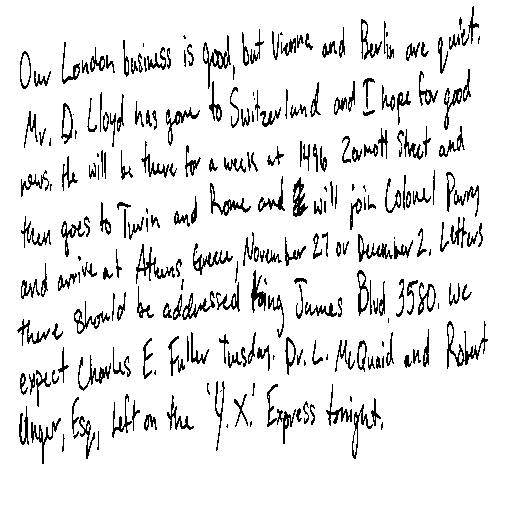 Our London business is good, but Vienna and Berlin are quiet.
Mr. D. Lloyd has gone to Switzerland and I hope for good
news. He will be there for a week at 1496 Zermott Street and
then goes to Turin and Rome and will join Colonel Parry
and arrive at Athens, Greece, November 27 or December 2. Letters
there should be addressed King James Blvd. 3580. We
expect Charles E. Fuller Tuesday. Dr. L. McQuaid and Robert
Unger, Esq., left on the 'Y.X.' Express tonight.